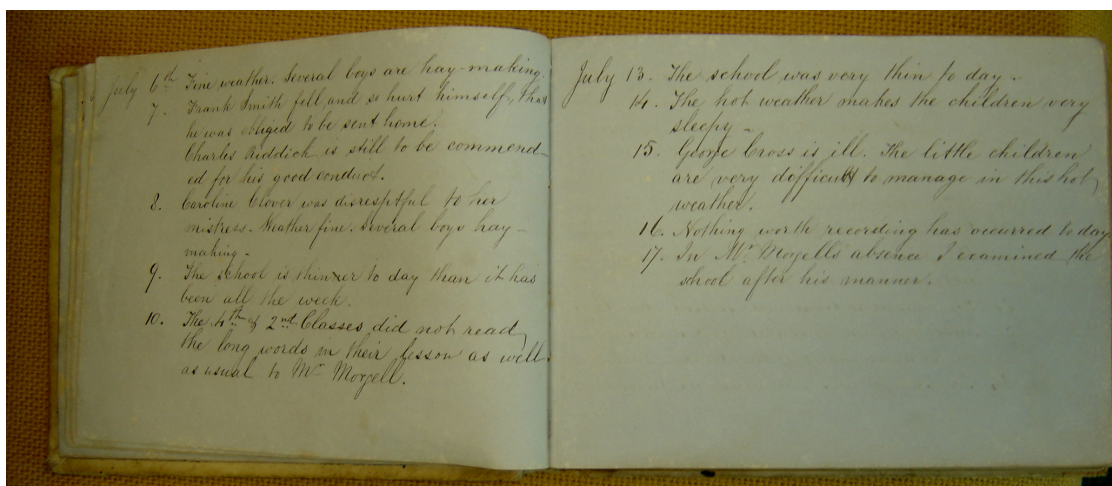 July 6th Fine weather. Several boys are hay-making.
7. Frank Smith fell and so hurt himself, that
he was obliged to be sent home.
Charles Riddick is still to be commend-
ed for his good conduct.
8. Caroline Clover was disresptful to her
mistress. Weather fine. Several boys hay-
making-
9. The school is thinner to day than it has
been all the week.
10. The 4th & 2nd Classes did not read
the long words in their lesson as well
as usual to Mr Morgell.
July 13. The school was very thin to day-
14. The hot weather makes the children very
sleepy-
15. George Cross is ill. The little children
are very difficult to manage in this hot
weather.
16. Nothing worth recording has occurred to day
17. In Mr Morgells absence I examined the
school after his manner.